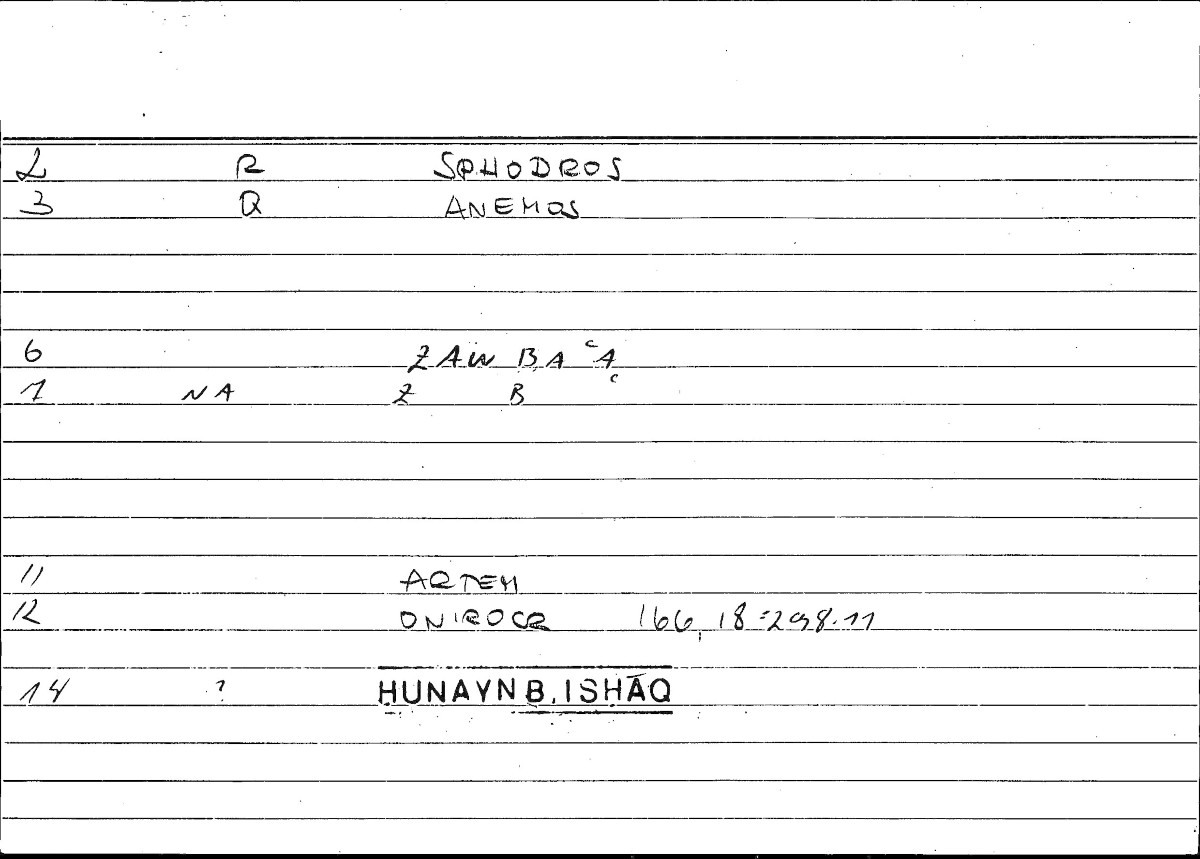 2 R SPHODROS
3 Q ANEMOS
6 ZAWBAʿA
7 NA Z B ʿ
11 ARTEM
12 ONIROCR 166,18=298.11
14 ? ḤUNAYN B. ISḤĀQ